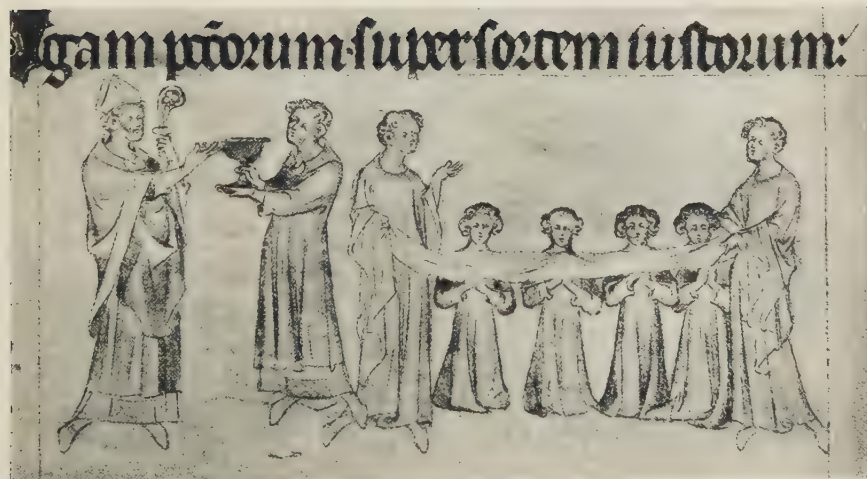 gam pcc̃orum·super sortem iustorum: